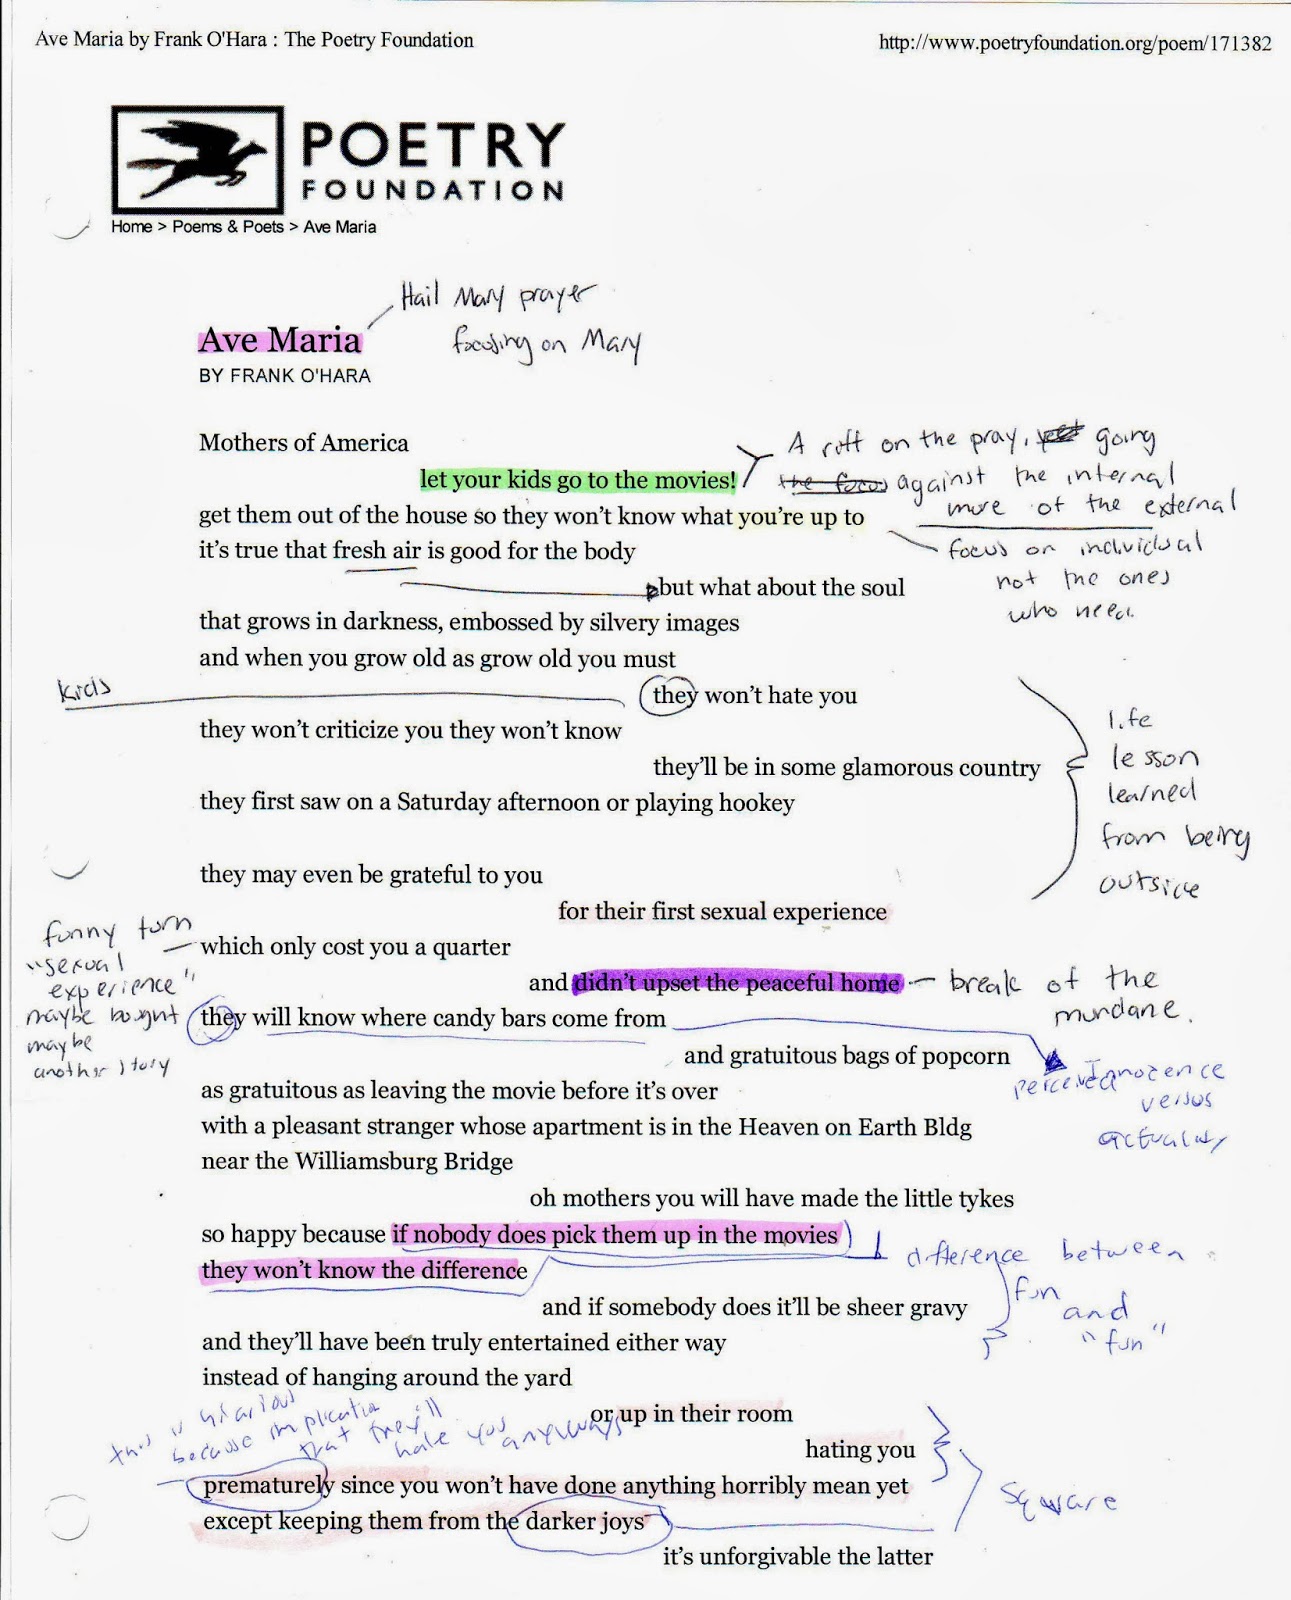 Ave Maria by Frank O'Hara : The Poetry Foundation
http://www.poetryfoundation.org/poem/171382
POETRY
FOUNDATION
Home > Poems & Poets > Ave Maria
Hail Mary prayer
focusing on Mary
Ave Maria
BY FRANK O'HARA
Mothers of America
let your kids go to the movies!
A riff on the pray, going
the focus against the internal
more of the external
get them out of the house so they won't know what you're up to
it's true that fresh air is good for the body
focus on individual
not the ones
who need.
but what about the soul
that grows in darkness, embossed by silvery images
and when you grow old as grow old you must
kids
they won't hate you
they won't criticize you they won't know
they'll be in some glamorous country
they first saw on a Saturday afternoon or playing hookey
life
lesson
learned
from being
outside
they may even be grateful to you
for their first sexual experience
which only cost you a quarter
funny turn
"sexual
experience"
maybe bought
maybe
another story
and didn't upset the peaceful home
break of the
mundane.
they will know where candy bars come from
and gratuitous bags of popcorn
perceived Innocence
versus
actuality
as gratuitous as leaving the movie before it's over
with a pleasant stranger whose apartment is in the Heaven on Earth Bldg
near the Williamsburg Bridge
oh mothers you will have made the little tykes
so happy because if nobody does pick them up in the movies
they won't know the difference
difference between
fun
and
"fun"
and if somebody does it'll be sheer gravy
and they'll have been truly entertained either way
instead of hanging around the yard
or up in their room
this is hilarious
because implication
that they'll
hate you
anyways
hating you
prematurely since you won't have done anything horribly mean yet
except keeping them from the darker joys
square
it's unforgivable the latter